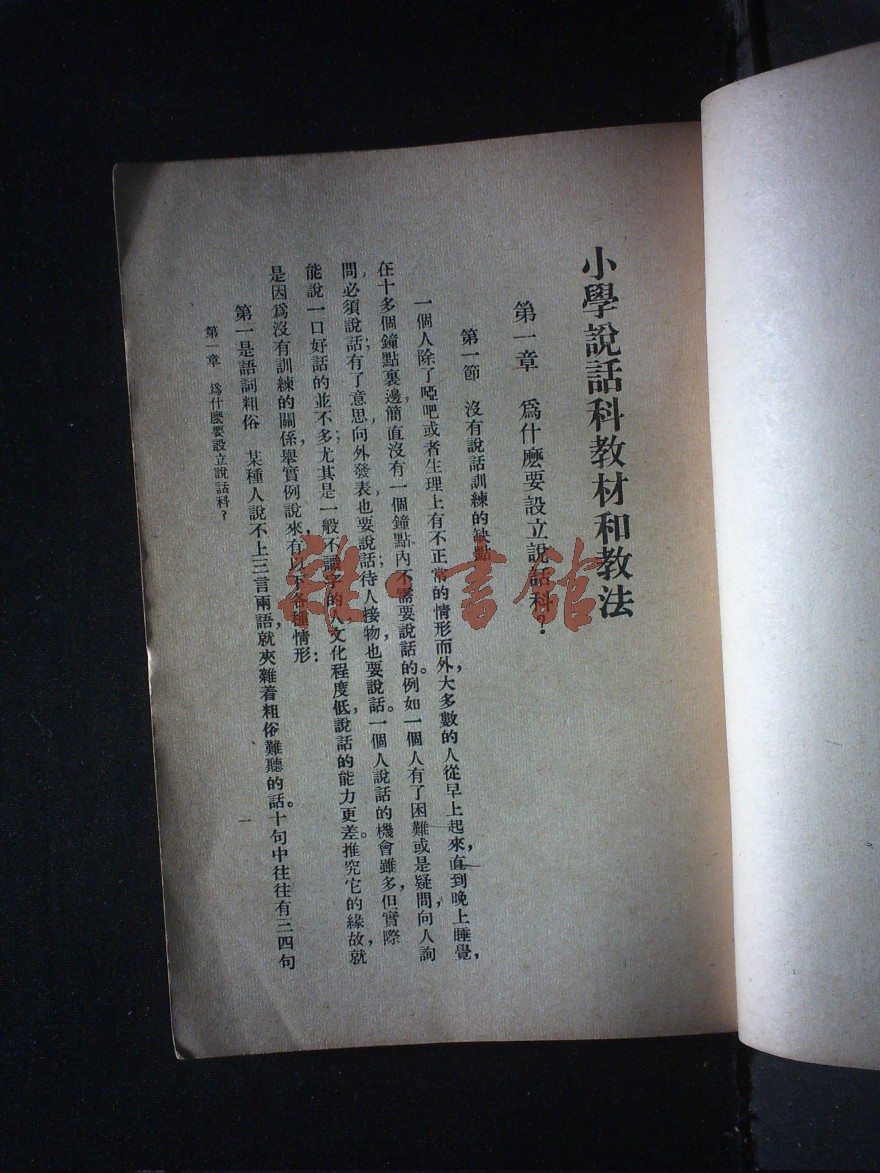 小學說話科教材和教法
第一章　爲什麽要設立說話科？
第一節　沒有說話訓練的缺點
一個人除了啞吧或者生理上有不正常的情形而外，大多數的人從早上起來，直到晚上睡覺，
在十多個鐘點裏邊，簡直沒有一個鐘點內不需要說話的。例如一個人有了困難或是疑問，向人詢
問，必須說話；有了意思，向外發表，也要說話；待人接物，也要說話。一個人說話的機會雖多，但實際
能說一口好話的並不多；尤其是一般不識字的人，文化程度低，說話的能力更差。推究它的緣故，就
是因爲沒有訓練的關係，舉實例說來，有以下各種情形：
第一是語詞粗俗　某種人說不上三言兩語，就夾雜着粗俗難聽的話。十句中往往有三四句
第一章　爲什麽要設立說話科？
一
雜書館